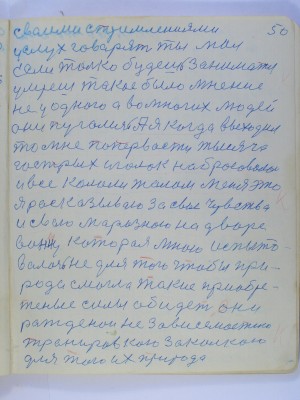 своими стремлениями 50
услух говорят ты мой
если толко будешь занимати
умреш такое было мнение
не у одного а во многих людей
они пугались А я когда выходил
то мне попервасти тысяча
гострых иголок набросовалось
и все кололи телом меня это
я россказываю за свои чувства
и свою морозною на дворе
ванну которая мною испыто-
валась не для того чтобы при-
рода смогла такие приобре-
теные силы обидет они
рождены не зависемостею
трениров кою закалкою
для того их природа